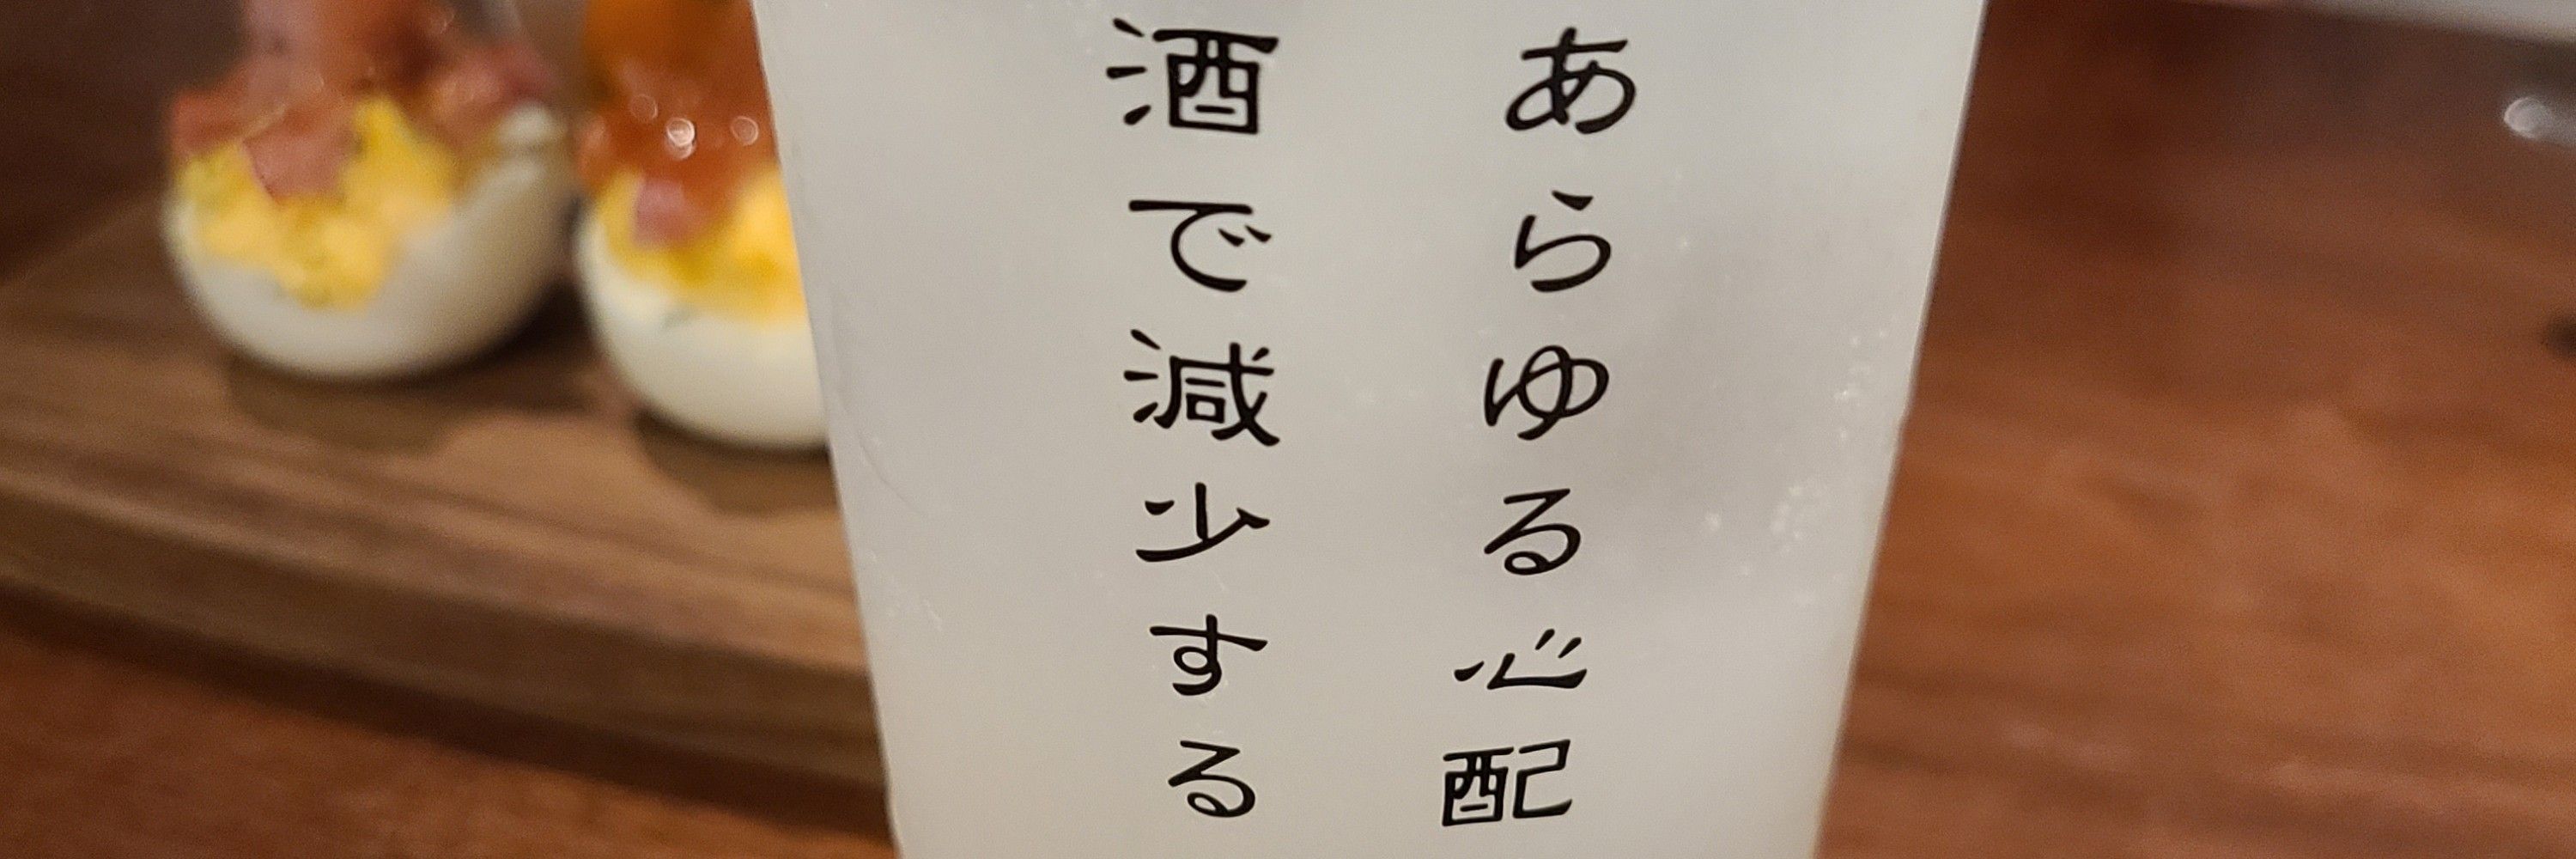 あらゆる心配
酒で減少する